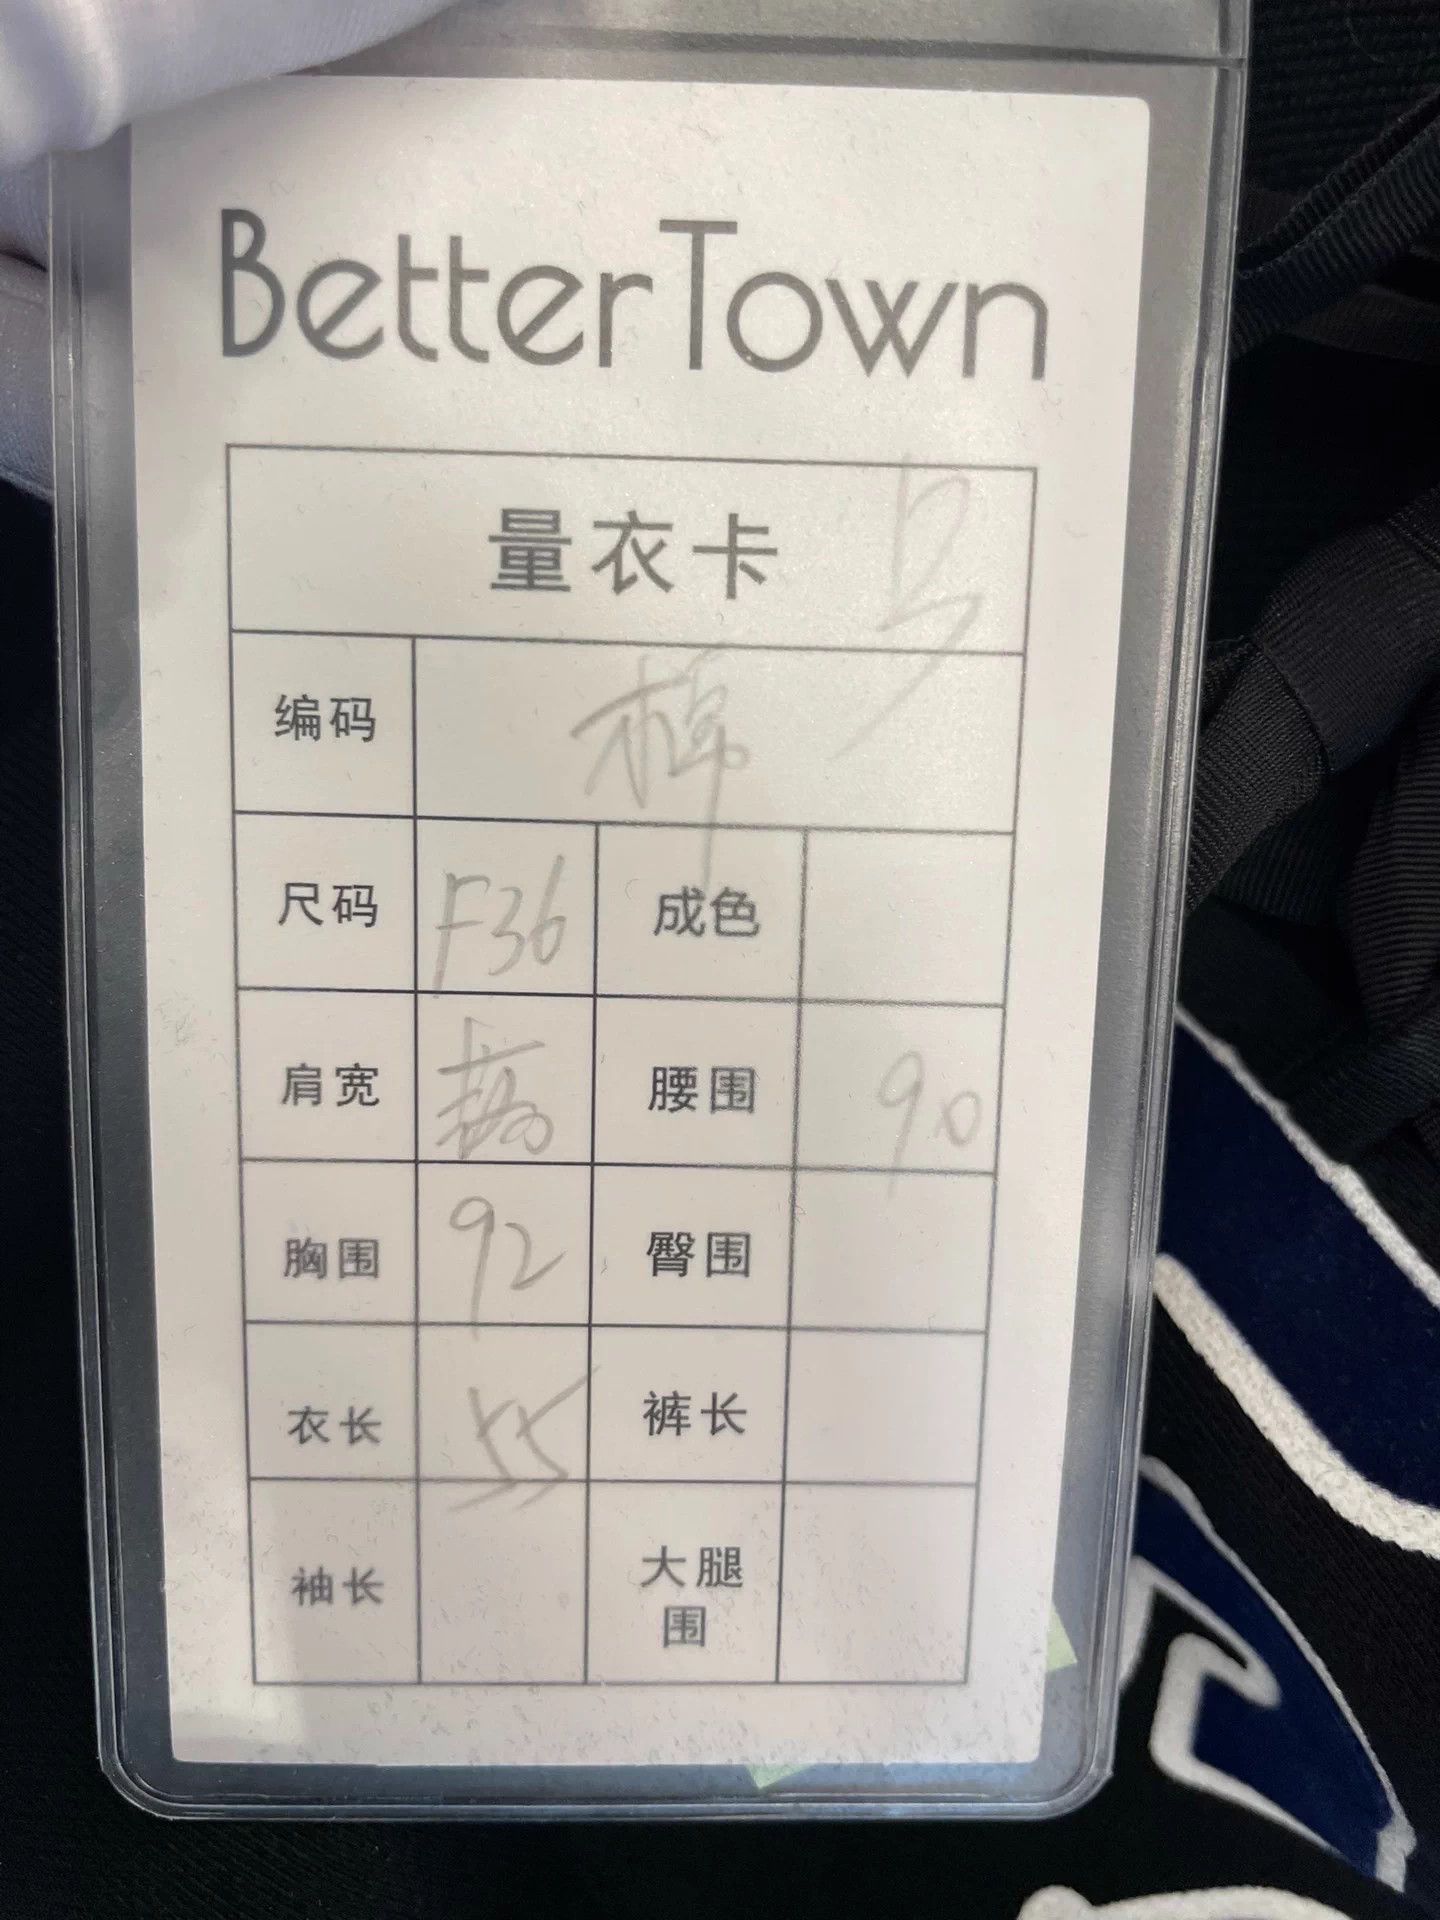 BetterTown
量衣卡
编码 棉
尺码 F36 成色
肩宽 腰围 90
胸围 92 臀围
衣长 55 裤长
袖长 大腿
围